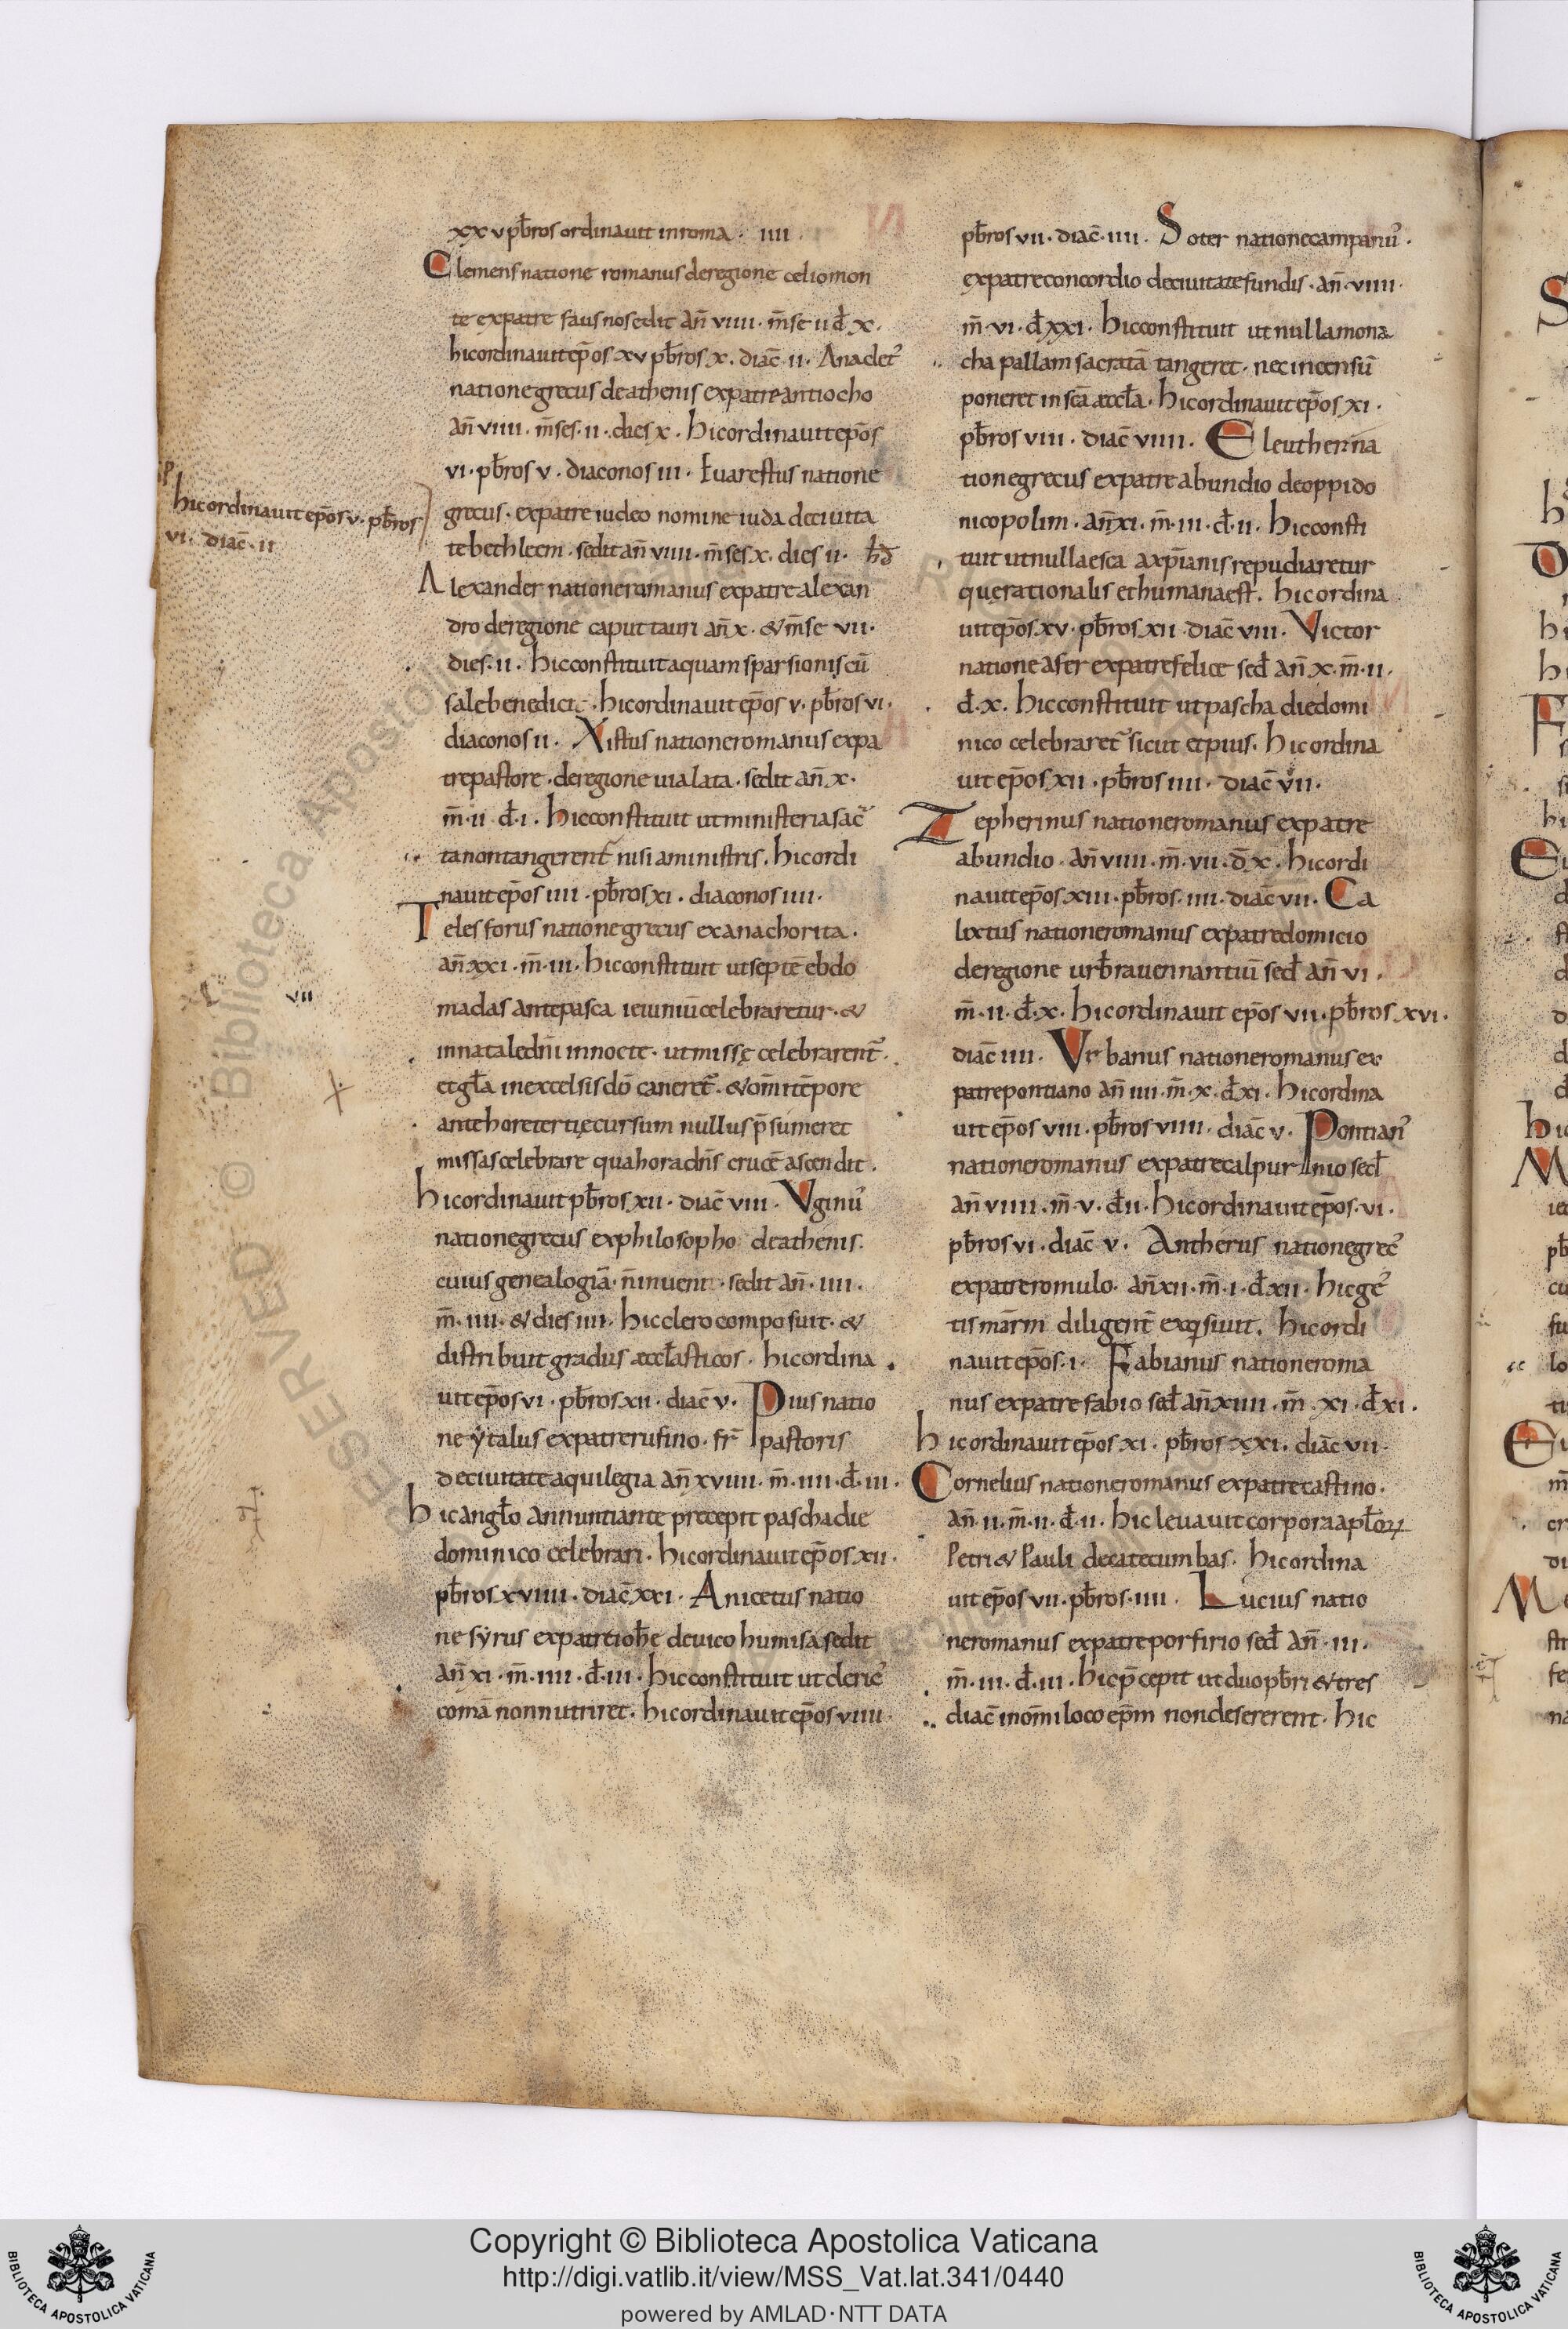 xxv pb̄ros ordinauit in roma · iiii
Clemens natione romanus de regione celio mon
te ex patre fausno sedit an̄ viiii · m̄se ii d̄ x ·
hic ordinauit ep̄os xv pb̄ros x · diac̄ ii · Anaclet᾽
natione grecus de athenis ex patre antiocho
an̄ viiii · m̄ses · ii · dies x · hic ordinauit ep̄os
vi · pb̄ros v · diaconos iii · Euarestus natione
hic ordinauit ep̄os v · pb̄ros
vi · diac̄ · ii
grecus · ex patre iudeo nomine iuda de ciuita
te bethleem · sedit an̄ viiii · m̄ses x · dies ii · h̄d
Alexander natione romanus ex patre alexan
dro de regione caput tauri an̄ x · & m̄se vii ·
dies · ii · hic constituit aquam sparsionis cū
sale benedici · hic ordinauit ep̄os v · pb̄ros vi ·
diaconos ii · Xistus natione romanus ex pa
tre pastore · de regione uia lata · sedit an̄ x ·
m̄ · ii d̄ · i · hic constituit ut ministeria sac̄
ta non tangerent̄ nisi a ministris · hic ordi
nauit ep̄os iiii · pb̄ros xi · diaconos iiii ·
Telesforus natione grecus ex anachorita ·
an̄ xxi · m̄ · iii · hic constituit ut septē ebdo
vii
madas ante pasca ieiuniū celebraretur · &
in natale dn̄i in nocte · ut missę celebrarent̄ ·
et gl̄a in excelsis dō caneret᾽ · & om̄i tēpore
ante hore tertię cursum nullus p̄sumeret
missas celebrare qua hora dn̄s crucē ascendit ·
hic ordinauit pb̄ros xii · diac̄ viii · Vginu᾽
natione grecus ex philosopho de athenis ·
cuius genealogiā · n̄ inueni · sedit an̄ · iiii ·
m̄ · iiii · & dies iiii · hic clero composuit · &
distribuit gradus æccl̄asticos · hic ordina
uit ep̄os vi · pb̄ros xii · diac̄ v · Pius natio
ne ẏtalus ex patre rufino · fr̄ pastoris
de ciuitate aquilegia an̄ xviiii · m̄ · iiii · d̄ · iii ·
hic angl̄o annuntiante precepit pascha die
dominico celebrari · hic ordinauit ep̄os xii ·
pb̄ros xviiii · diac̄ xxi · Anicetus natio
ne sẏrus ex patre ioh̄e de uico humisa sedit
an̄ xi · m̄ · iiii · d̄ · iii · hic constituit ut cleric᾽
comā non nutriret · hic ordinauit ep̄os viiii
pb̄ros vii · diac̄ · iiii · Soter natione campanu᾽ ·
ex patre concordio de ciuitate fundis · an̄ · viiii ·
m̄ · vi · d̄ xxi · hic constituit ut nulla mona
cha pallam sacratā tangeret · nec incensū
poneret in scā æccl̄a · hic ordinauit ep̄os xi ·
pb̄ros viii · diac̄ viiii · Eleuther na
tione grecus ex patre abundio de oppido
nicopolim · an̄ xi · m̄ · iii · d̄ · ii · hic consti
tuit ut nulla esca a xp̄ianis repudiaretur
quę rationalis et humana est · hic ordina
uit ep̄os xv · pb̄ros xii · diac̄ viii · Victor
natione afer ex patre felice sed̄ an̄ x · m̄ · ii ·
d̄ · x · hic constituit ut pascha die domi
nico celebraret᾽ sicut et pius · hic ordina
uit ep̄os xii · pb̄ros iiii · diac̄ vii ·
Zepherinus natione romanus ex patre
abundio · an̄ viiii · m̄ · vii · d̄ x · hic ordi
nauit ep̄os xiii · pb̄ros · iiii · diac̄ vii · Ca
lixtus natione romanus ex patre domicio
de regione urb̄ rauennantiū sed̄ an̄ vi ·
m̄ · ii · d̄ · x · hic ordinauit ep̄os vii · pb̄ros xvi ·
diac̄ iiii · Vrbanus natione romanus ex
patre pontiano an̄ iiii · m̄ · x · d̄ xi · hic ordina
uit ep̄os viii · pb̄ros viiii · diac̄ v · Pontian᾽
natione romanus ex patre calpurnio sed̄
an̄ viiii · m̄ · v · d̄ ii · hic ordinauit ep̄os · vi ·
pb̄ros vi · diac̄ v · Antherus natione grec᾽
ex patre romulo · an̄ xii · m̄ · i · d̄ xii · hic ge᾽
tis mārm̄ diligent̄ exqisiuit · hic ordi
nauit ep̄os · i · Fabianus natione roma
nus ex patre fabio sed̄ an̄ xiiii · m̄ · xi · d̄ xi ·
hic ordinauit ep̄os xi · pb̄ros xxi · diac̄ vii ·
Cornelius natione romanus ex patre castino ·
an̄ · ii · m̄ · ii · d̄ · ii · hic leuauit corpora apl̄oꝝ
Petri & Pauli de catecumbas · hic ordina
uit ep̄os vii · pb̄ros · iiii · Lucius natio
ne romanus ex patre porfirio sed̄ an̄ · iii ·
m̄ · iii · d̄ · iii · hic p̄cepit ut duo pb̄ri & tres
diac̄ in om̄i loco ep̄m non desererent · hic
Copyright © Biblioteca Apostolica Vaticana
http://digi.vatlib.it/view/MSS_Vat.lat.341/0440
powered by AMLAD·NTT DATA
BIBLIOTECA APOSTOLICA VATICANA
BIBLIOTECA APOSTOLICA VATICANA